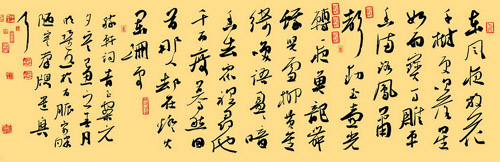 東風夜放花
千樹更吹落星
如雨寶馬雕車
香滿路鳳簫
聲動玉壺光
轉一夜魚龍舞
蛾兒雪柳黃金
縷笑語盈盈暗
香去衆裡尋他
千百度驀然回
首那人却在燈火
闌珊處
稼軒詞青玉案元
夕